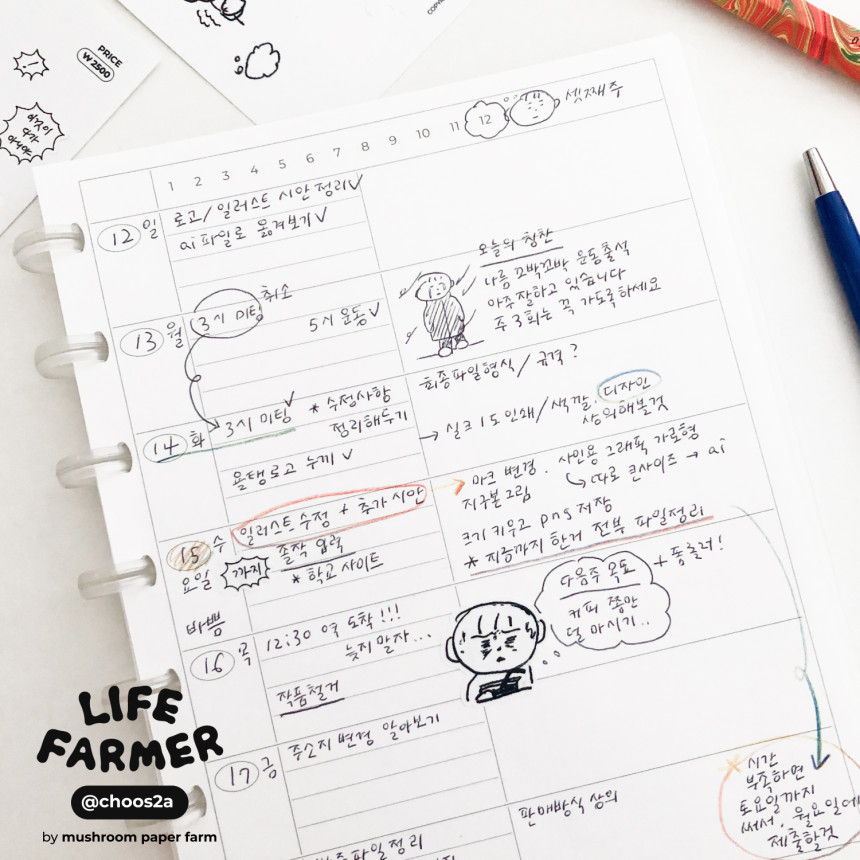 PRICE
₩2500
이것이
아니야
1 2 3 4 5 6 7 8 9 10 11 12
셋째주
12 일
로고/일러스트 시안 정리 ✓
ai 파일로 옮겨보기 ✓
13 월
3시 미팅
취소
5시 운동 ✓
오늘의 칭찬
나름 꼬박꼬박 운동출석
아주 잘하고 있습니다
주 3회는 꼭 가도록하세요
14 화
3시 미팅 ✓
* 수정사항
정리해두기
욜탱로고 누끼 ✓
최종파일형식/규격?
→ 실크 1도 인쇄/색깔, 디자인
상의해볼것
15 수
요일
바쁨
일러스트 수정 + 추가 시안
까지
졸작 업력
* 학교 사이트
마크 변경. 사인용 그래픽 가로형
지구본 그림
따로 큰사이즈 → ai
크기 키우고 png 저장
* 지금까지 한거 전부 파일정리
16 목
12:30 역 도착!!!
늦지말자...
작품철거
다음주 목표
커피 쫌만
덜 마시기..
+ 폼롤러!
17 금
주소지 변경 알아보기
판매방식 상의
최종파일정리
시간
부족하면
토요일까지
써서, 월요일에
제출할것
LIFE
FARMER
@choos2a
by mushroom paper farm